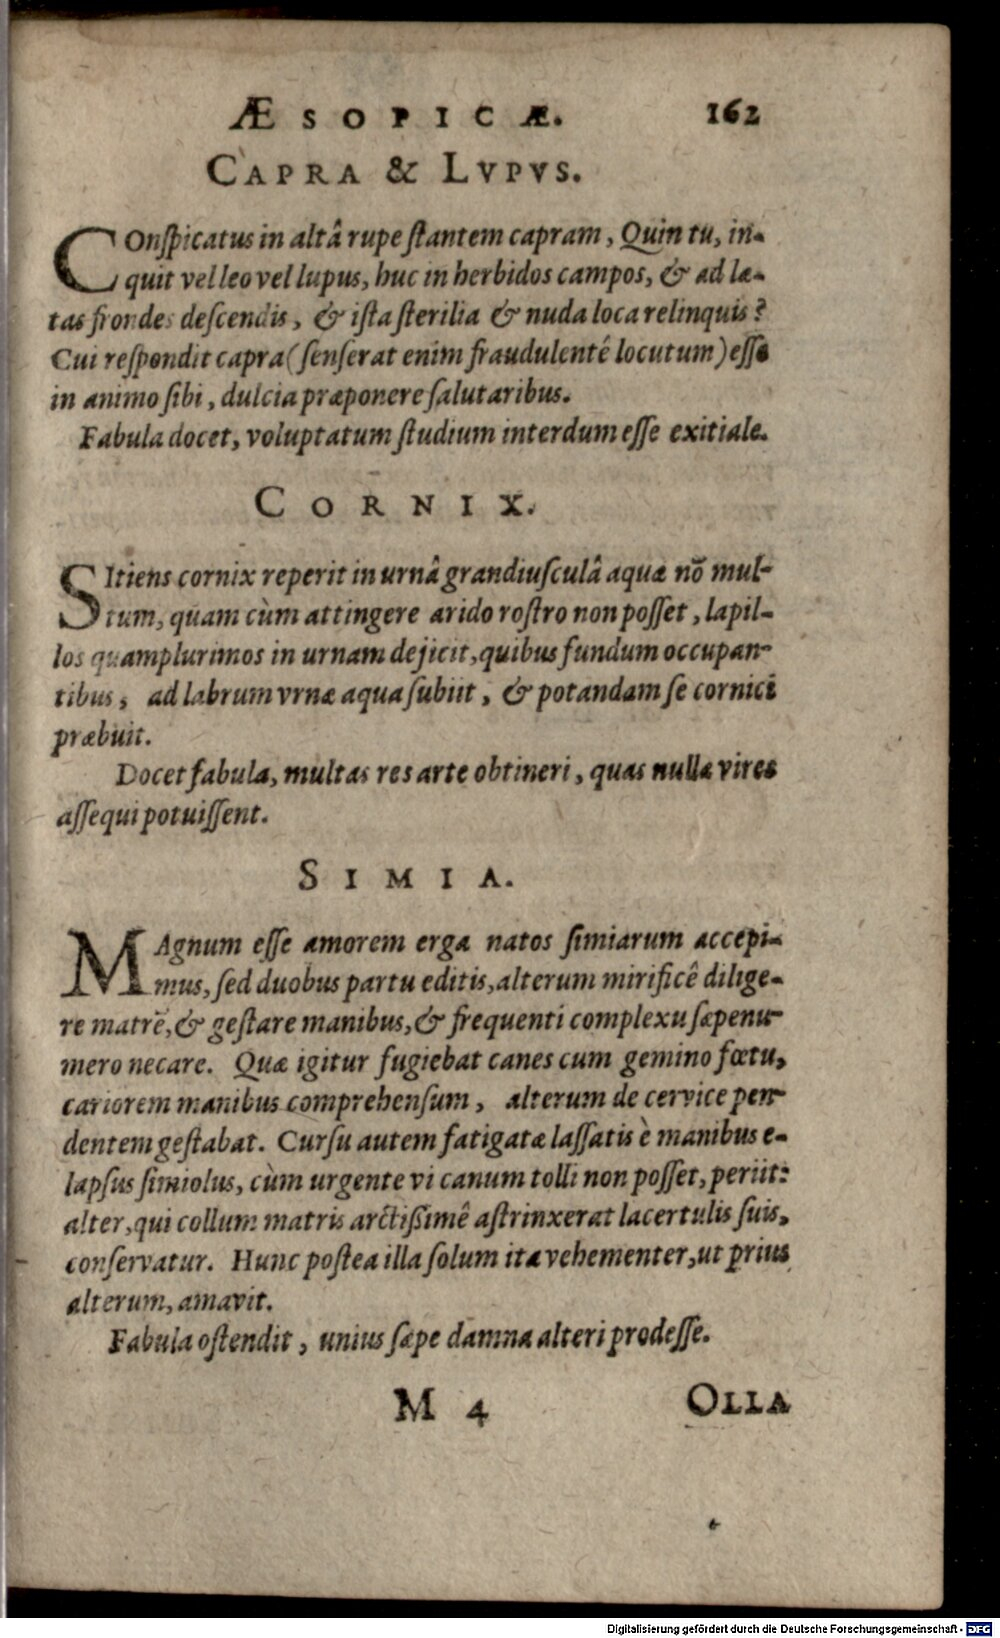 ÆSOPICÆ. 162
CAPRA & LVPVS.
COnſpicatus in altâ rupe ſtantem capram, Quin tu, in-
quit vel leo vel lupus, huc in herbidos campos, & ad læ-
tas frondes deſcendis, & iſta ſterilia & nuda loca relinquis?
Cui reſpondit capra (ſenſerat enim fraudulentê locutum) eſſe
in animo ſibi, dulcia præponere ſalutaribus.
Fabula docet, voluptatum ſtudium interdum eſſe exitiale.
CORNIX.
SItiens cornix reperit in urnâ grandiuſculâ aquæ nõ mul-
tum, quam cùm attingere arido roſtro non poſſet, lapil-
los quamplurimos in urnam dejicit, quibus fundum occupan-
tibus, ad labrum vrnæ aqua ſubiit, & potandam ſe cornici
præbuit.
Docet fabula, multas res arte obtineri, quas nullæ vires
aſſequi potuiſſent.
SIMIA.
MAgnum eſſe amorem erga natos ſimiarum accepi-
mus, ſed duobus partu editis, alterum mirificê dilige-
re matrẽ, & geſtare manibus, & frequenti complexu ſæpenu-
mero necare. Quæ igitur fugiebat canes cum gemino fœtu,
cariorem manibus comprehenſum, alterum de cervice pen-
dentem geſtabat. Curſu autem fatigatæ laſſatis è manibus e-
lapſus ſimiolus, cùm urgente vi canum tolli non poſſet, periit:
alter, qui collum matris arctißimê aſtrinxerat lacertulis ſuis,
conſervatur. Hunc poſtea illa ſolum ita vehementer, ut prius
alterum, amavit.
Fabula oſtendit, unius ſæpe damna alteri prodeſſe.
M 4 OLLA
Digitalisierung gefördert durch die Deutsche Forschungsgemeinschaft - DFG